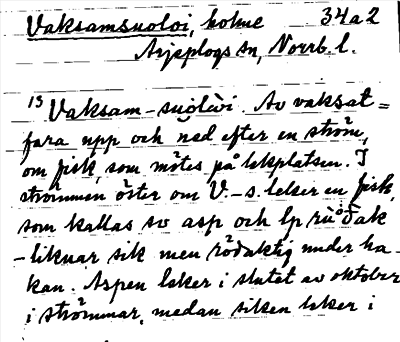 Vaksamsuoloi, holme 34a2
Arjeplogs sn, Norrb. l.
13 Vaksam-suölùi. Av vaksat =
fara upp och ned efter en ström,
om fisk, som mötes på lekplatsen. I
strömmen öster om V.-s. leker en fisk,
som kallas sv asp och lp
- liknar sik men rödaktig under ha-
kan. Aspen leker i slutet av oktober
i strömmar, medan siken leker i